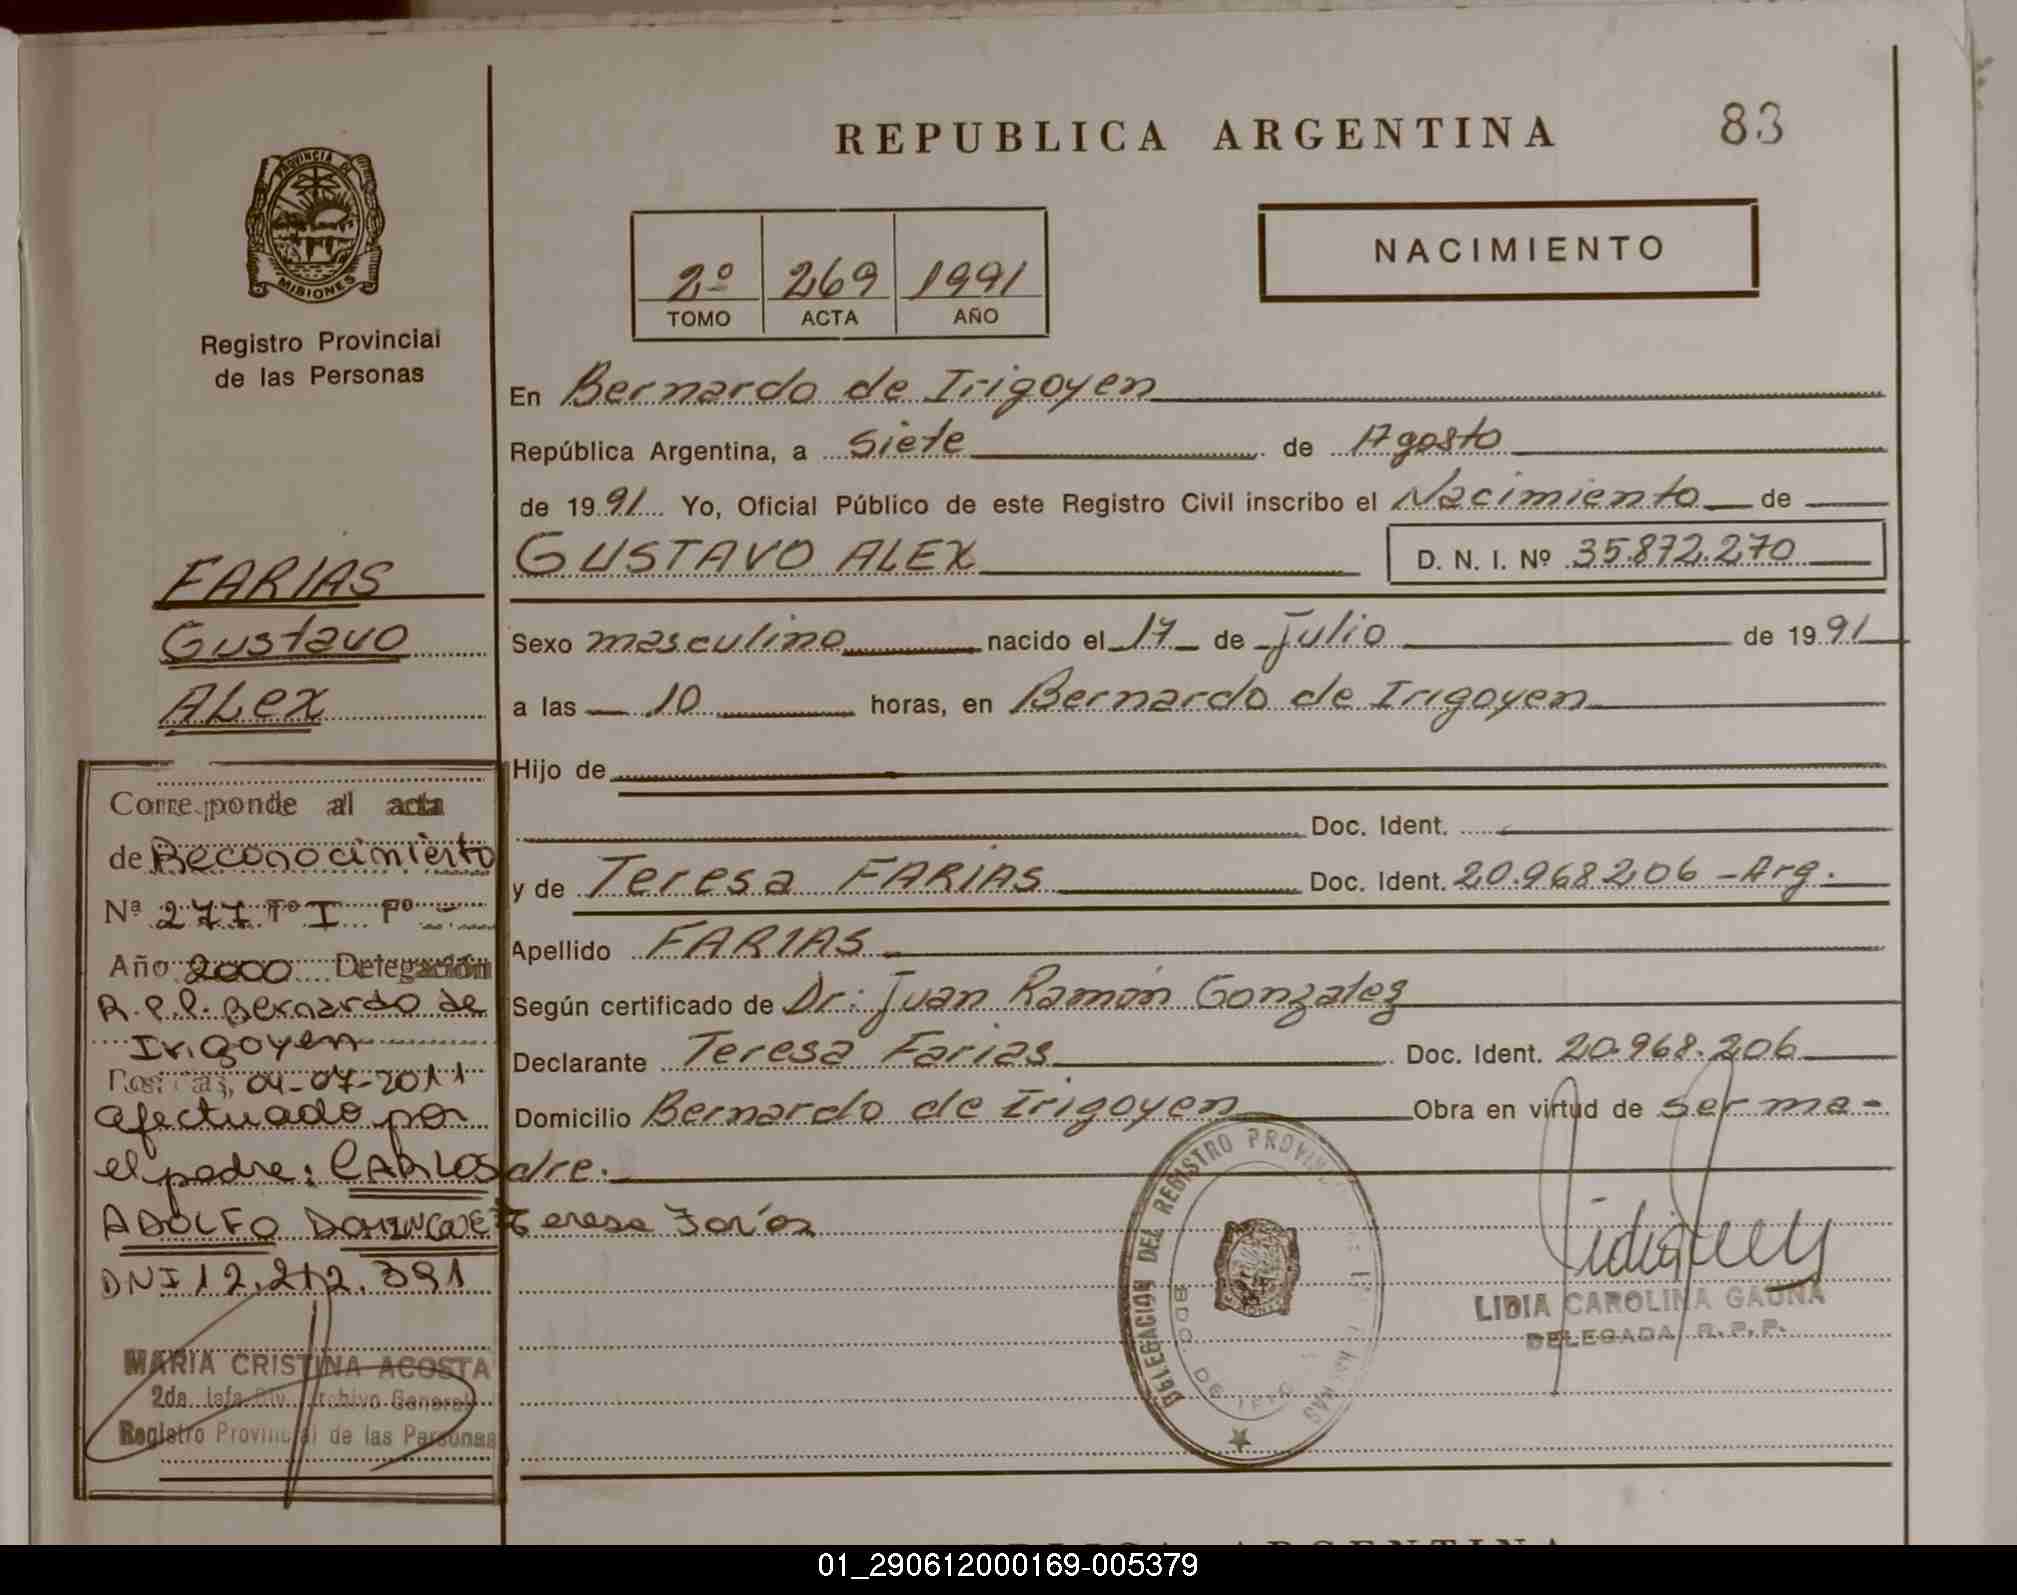 REPUBLICA ARGENTINA
83
PROVINCIA DE
MISIONES
Registro Provincial
de las Personas
2º 269 1991
TOMO ACTA AÑO
NACIMIENTO
En Bernardo de Irigoyen
República Argentina, a Siete de Agosto
de 1991 Yo, Oficial Público de este Registro Civil inscribo el Nacimiento de
GUSTAVO ALEX D. N. I. Nº 35.872.270
Sexo masculino nacido el 17 de Julio de 1991
a las 10 horas, en Bernardo de Irigoyen
Hijo de
Doc. Ident.
y de Teresa FARIAS Doc. Ident. 20.968206 - Arg.
Apellido FARIAS
Según certificado de Dr: Juan Ramón Gonzalez
Declarante Teresa Farias Doc. Ident. 20.968.206
Domicilio Bernardo de Irigoyen Obra en virtud de ser ma-
dre.
Teresa Farías
DELEGACION DEL REGISTRO
LIDIA CAROLINA GAUNA
DELEGADA R.P.P.
FARIAS
Gustavo
ALex
Corresponde al acta
de Reconocimiento
Nª 277 Tº I Fº -
Año 2000 Delegación
R.P.P. Bernardo de
Irigoyen
Posadas, 04-07-2011
efectuado por
el padre: CARLOS
ADOLFO DOMINGUEZ
DNI 12.212.391
MARIA CRISTINA ACOSTA
2da. Jefa Div. Archivo General
Registro Provincial de las Personas
01_290612000169-005379